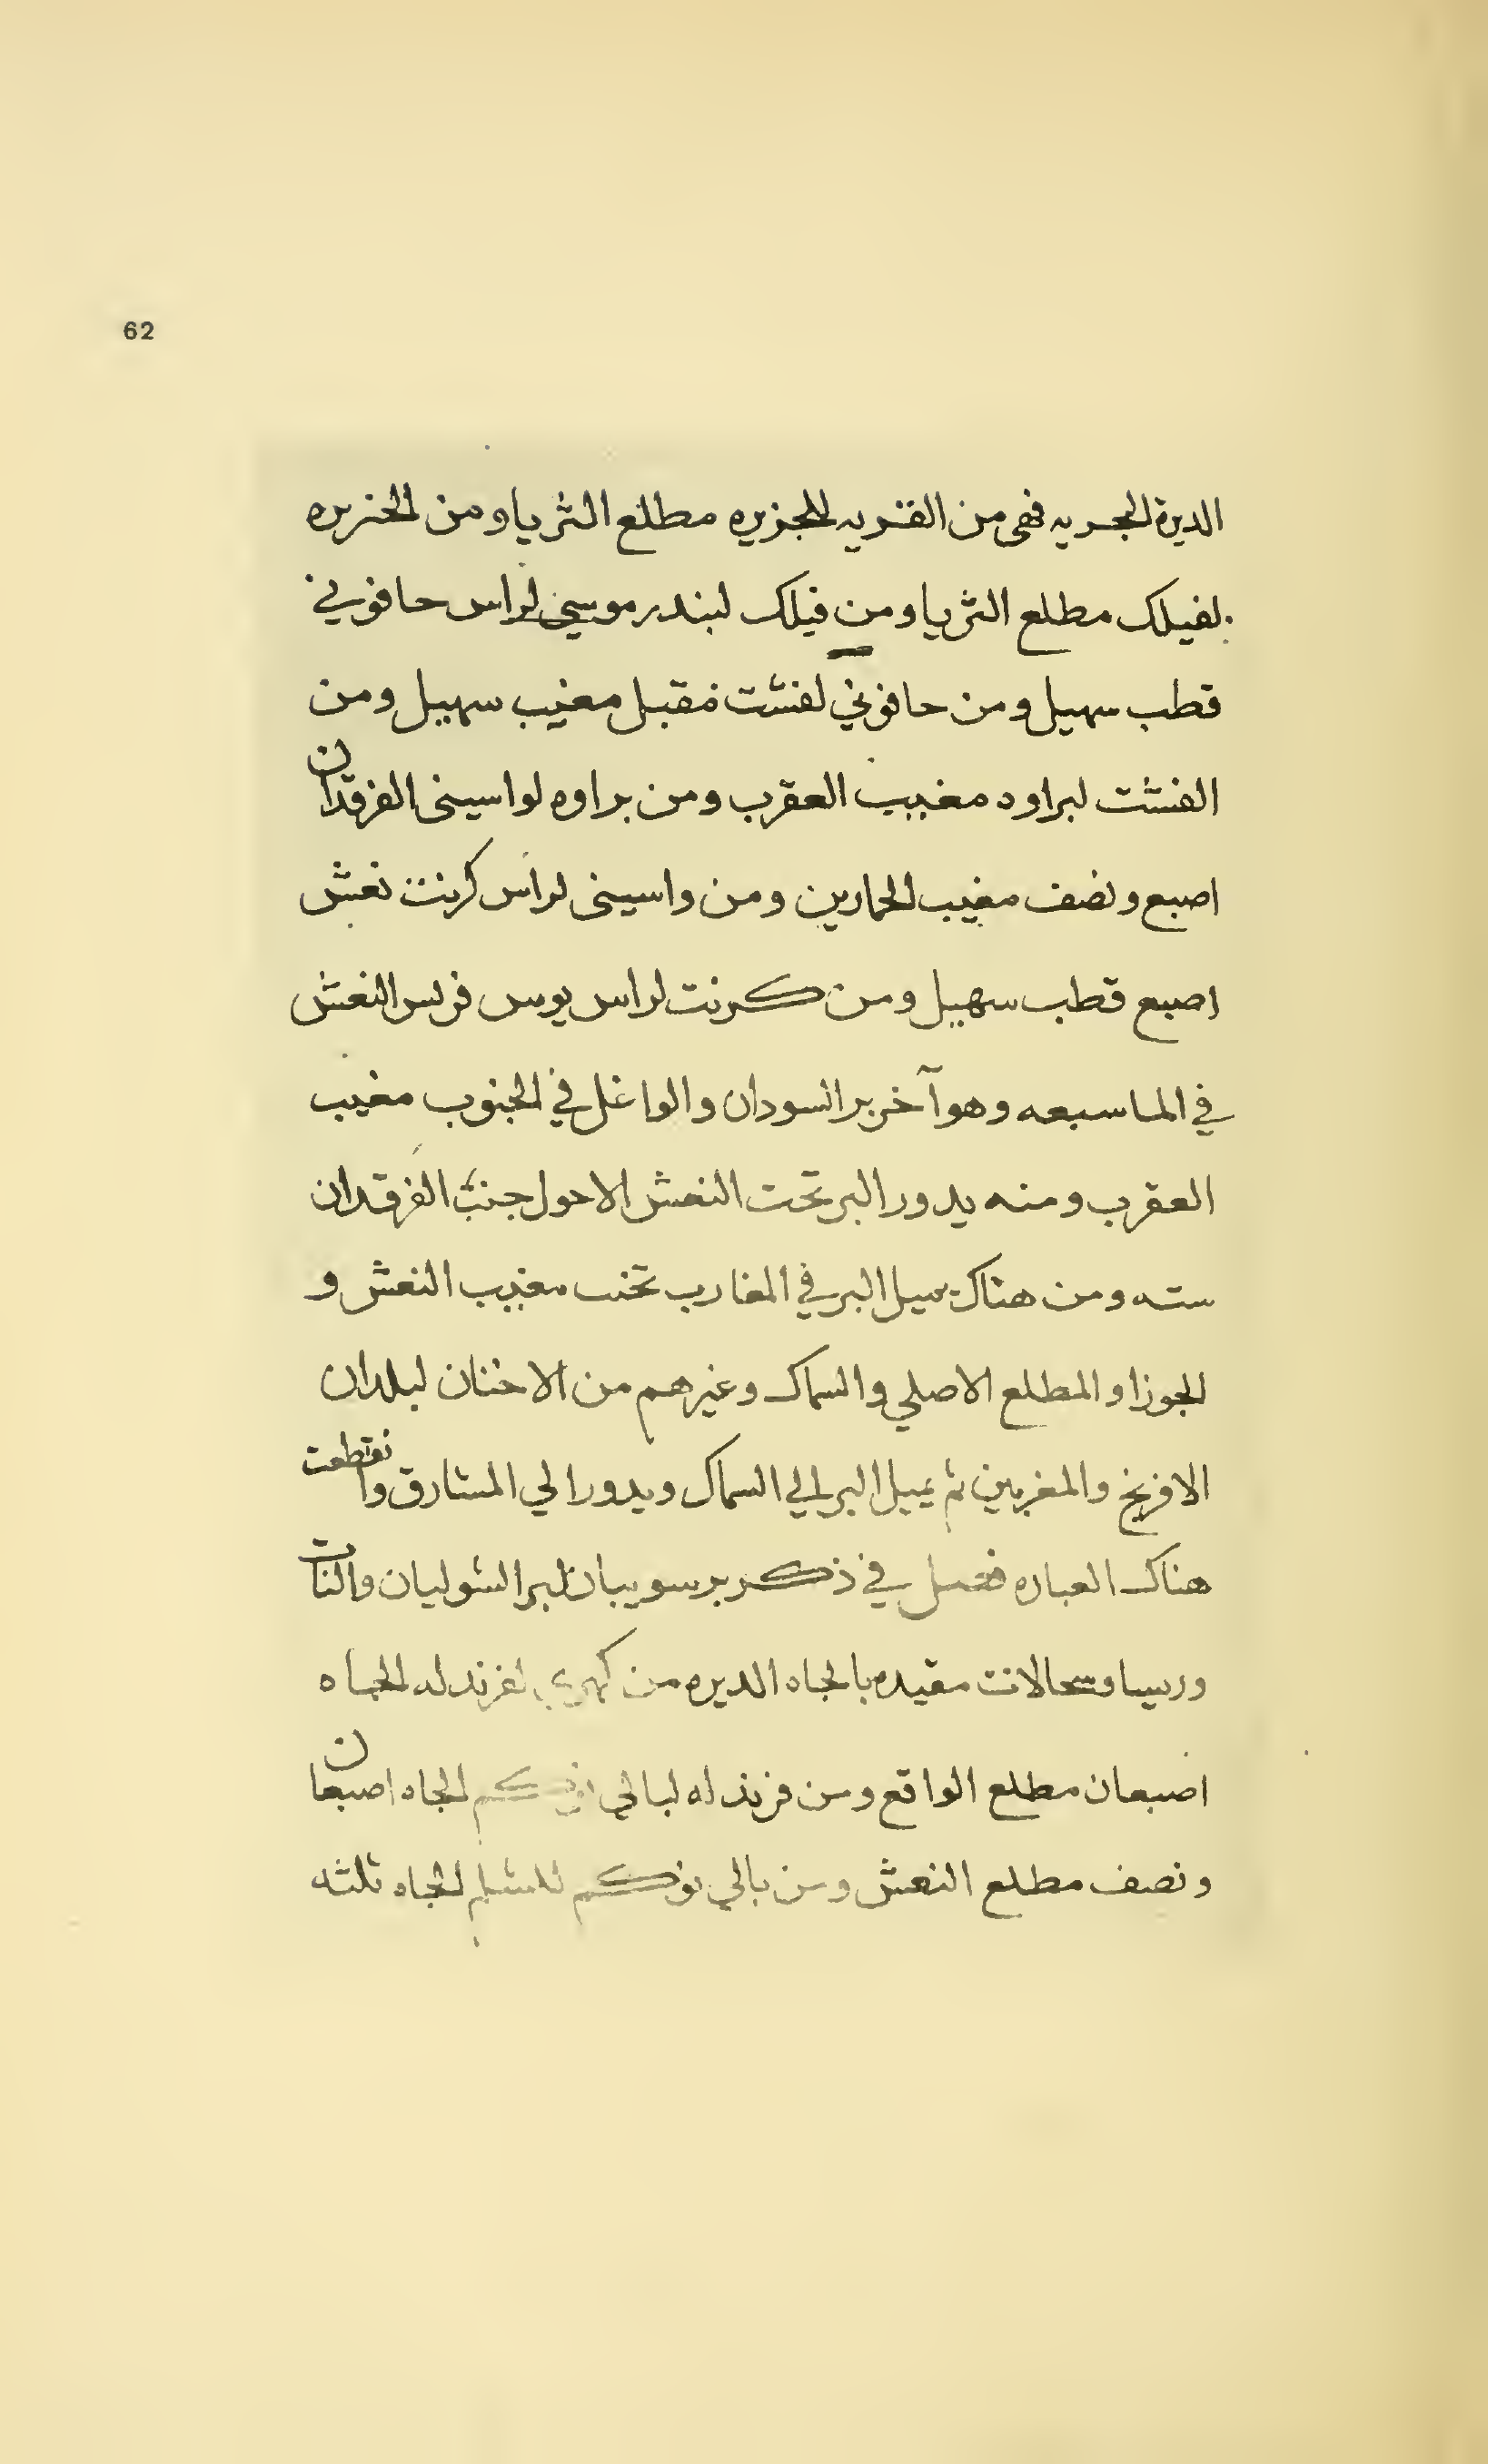 62
الديرة البحريه فهي من القنديه للجزيره مطلع الثريا ومن الخنزيره
لفيلك مطلع الثريا ومن فيلك لبندر موسي لراس حافوني
قطب سهيل ومن حافوني لفشت مقبل مغيب سهيل ومن
الفشت لبراوه مغيب العقرب ومن براوه لواسيني الفرقدان
اصبع ونصف مغيب الحمارين ومن واسيني لراس كرنت نعش
اصبع قطب سهيل ومن كرنت لراس يوس فرس النعش
في الما سبعه وهو آخر بر السودان والواغل في الجنوب مغيب
العقرب ومنه يدور البر تحت النعش الاحول جنب الفرقدان
سته ومن هناك يميل البر في المغارب تحت مغيب النعش و
الجوزا والمطلع الاصلي والسماك وغيرهم من الاخنان لبلدان
الافرنج والمغربين ثم يميل البر الي السماك ويدور الي المشارق وانقطعت
هناك العباره فصل في ذكر بر سويبان لبر الشوليان والنات
وريسا وسجالانت مقيده بالجاه الديره من كهري لفرندله الجاه
اصبعان مطلع الواقع ومن فرندله لبالي الجاه اصبعان
ونصف مطلع النعش ومن بالي الجاه ثلثه